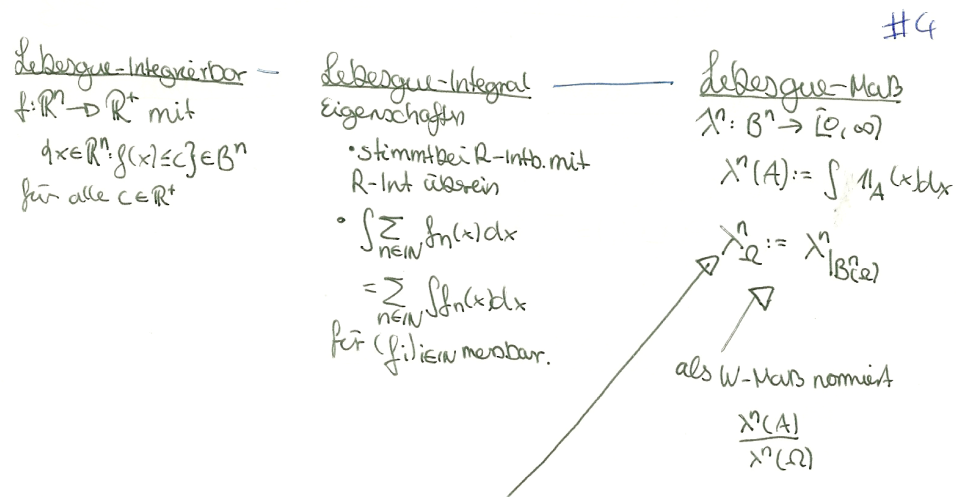 #4
Lebesgue-Integrierbar
f: ℝⁿ → ℝ⁺ mit
{x∈ℝⁿ: f(x) ≤ c} ∈ Bⁿ
für alle c∈ℝ⁺
Lebesgue-Integral
Eigenschaftn
• stimmt bei R-Intb. mit
R-Int überein
• ∫ ∑_{n∈ℕ} fₙ(x)dx
= ∑_{n∈ℕ} ∫fₙ(x)dx
für (fᵢ)_{i∈ℕ} messbar.
Lebesgue-Maß
λⁿ: Bⁿ → [0,∞)
λⁿ(A) := ∫ 𝟙_A(x)dx
λⁿ_Ω := λⁿ_{|Bⁿ(Ω)}
als W-Maß normiert
λⁿ(A)
λⁿ(Ω)